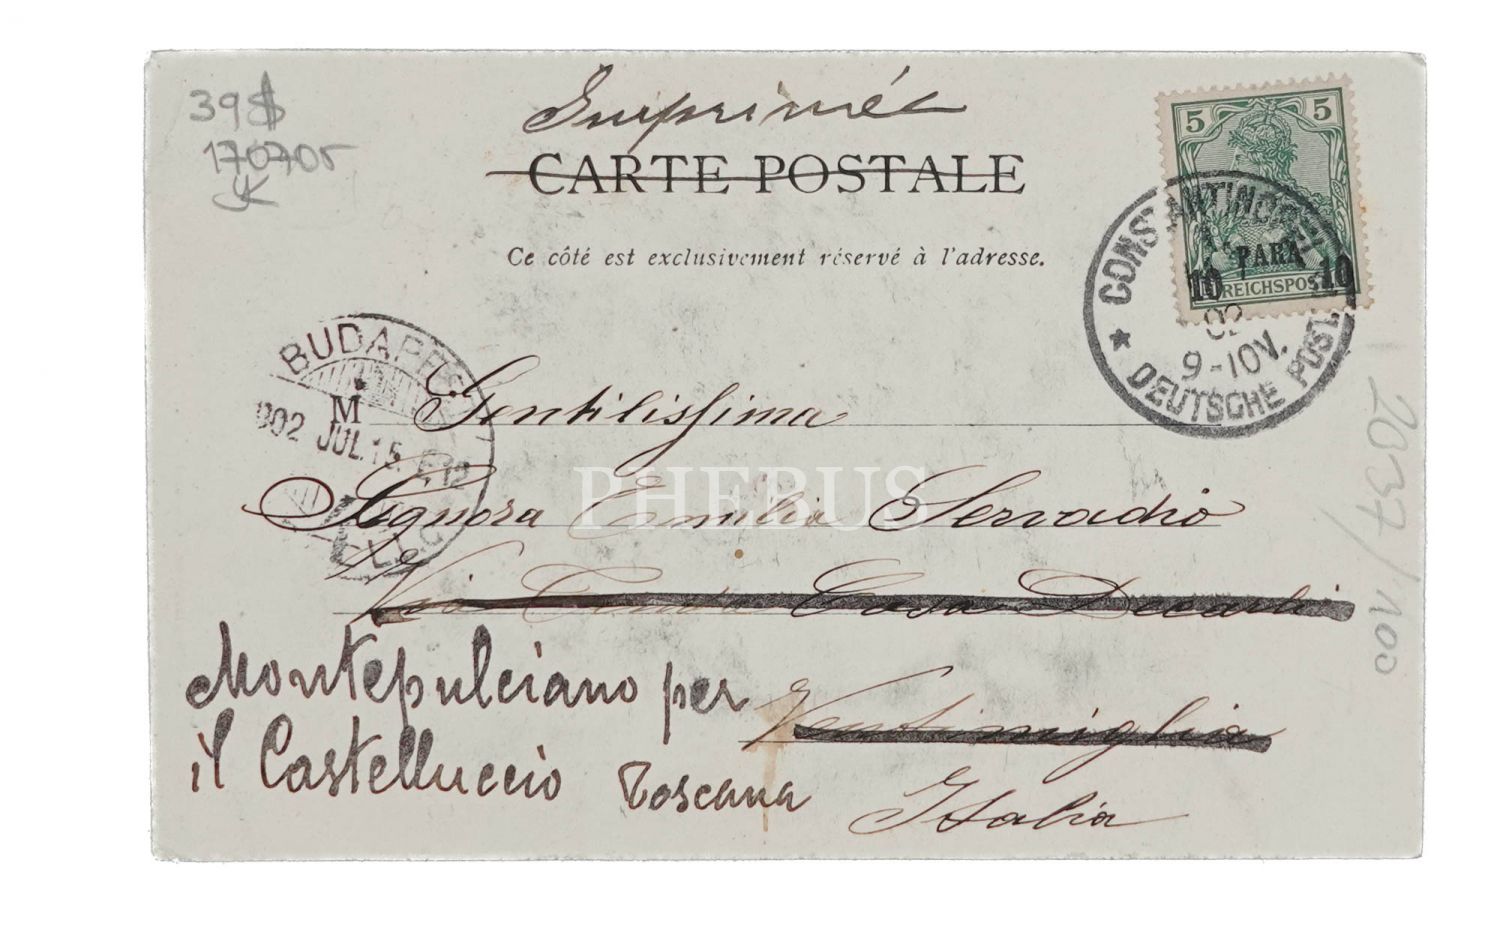 39$
170705
Imprimés
CARTE POSTALE
Ce côté est exclusivement réservé à l'adresse.
5 5
10 PARA 10
REICHSPOST
CONSTANTINOPEL
02
9-10V.
★ DEUTSCHE POST.
BUDAPEST
M
902 JUL. 15.
Gentilissima
Signora Emilia Servadio
PHEBUS
Via Casa Decarli
Ventimiglia
Montepulciano per
il Castelluccio Toscana
Italia
2037/100